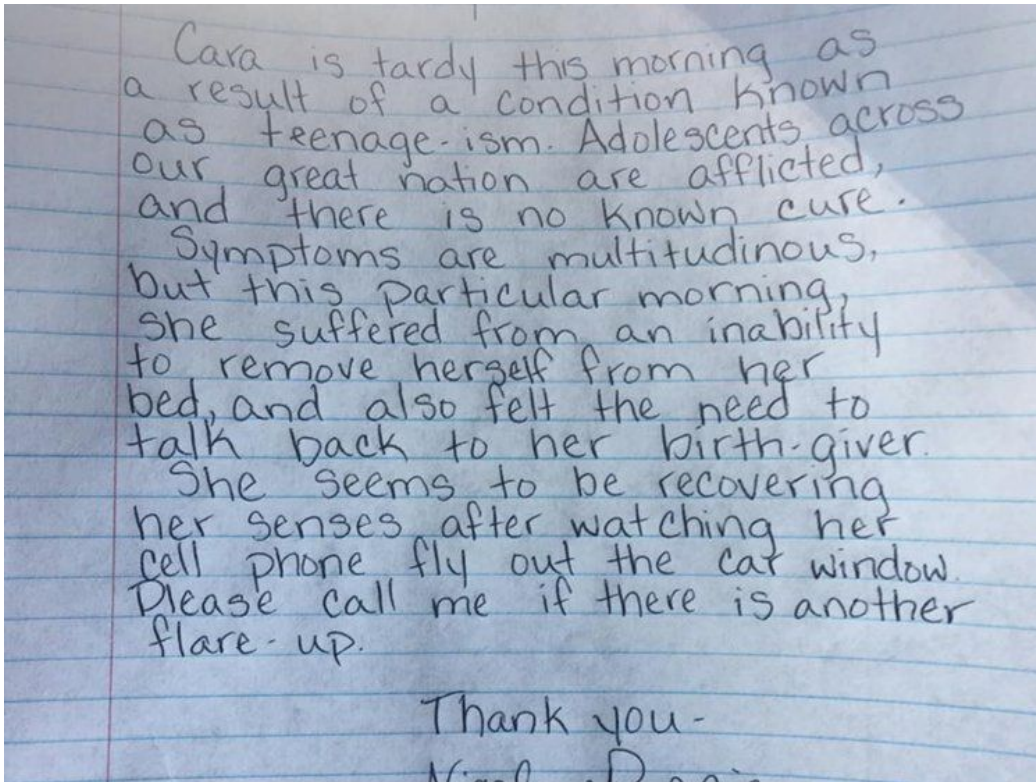 Cara is tardy this morning as
a result of a condition known
as teenage-ism. Adolescents across
our great nation are afflicted,
and there is no known cure.
Symptoms are multitudinous,
but this particular morning,
she suffered from an inability
to remove herself from her
bed, and also felt the need to
talk back to her birth-giver.
She seems to be recovering
her senses after watching her
cell phone fly out the car window.
Please call me if there is another
flare-up.
Thank you-